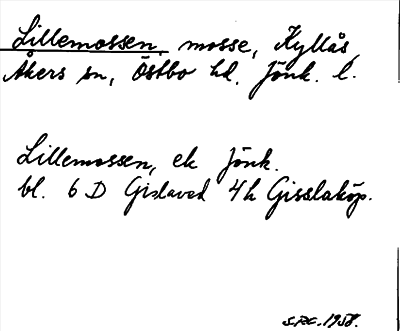 Lillemossen, mosse, Kyllås,
Åkers sn, Östbo hd, Jönk. l.
Lillemossen, ek Jönk.
bl. 6 D Gislaved 4h Gisslaköp.
1958.